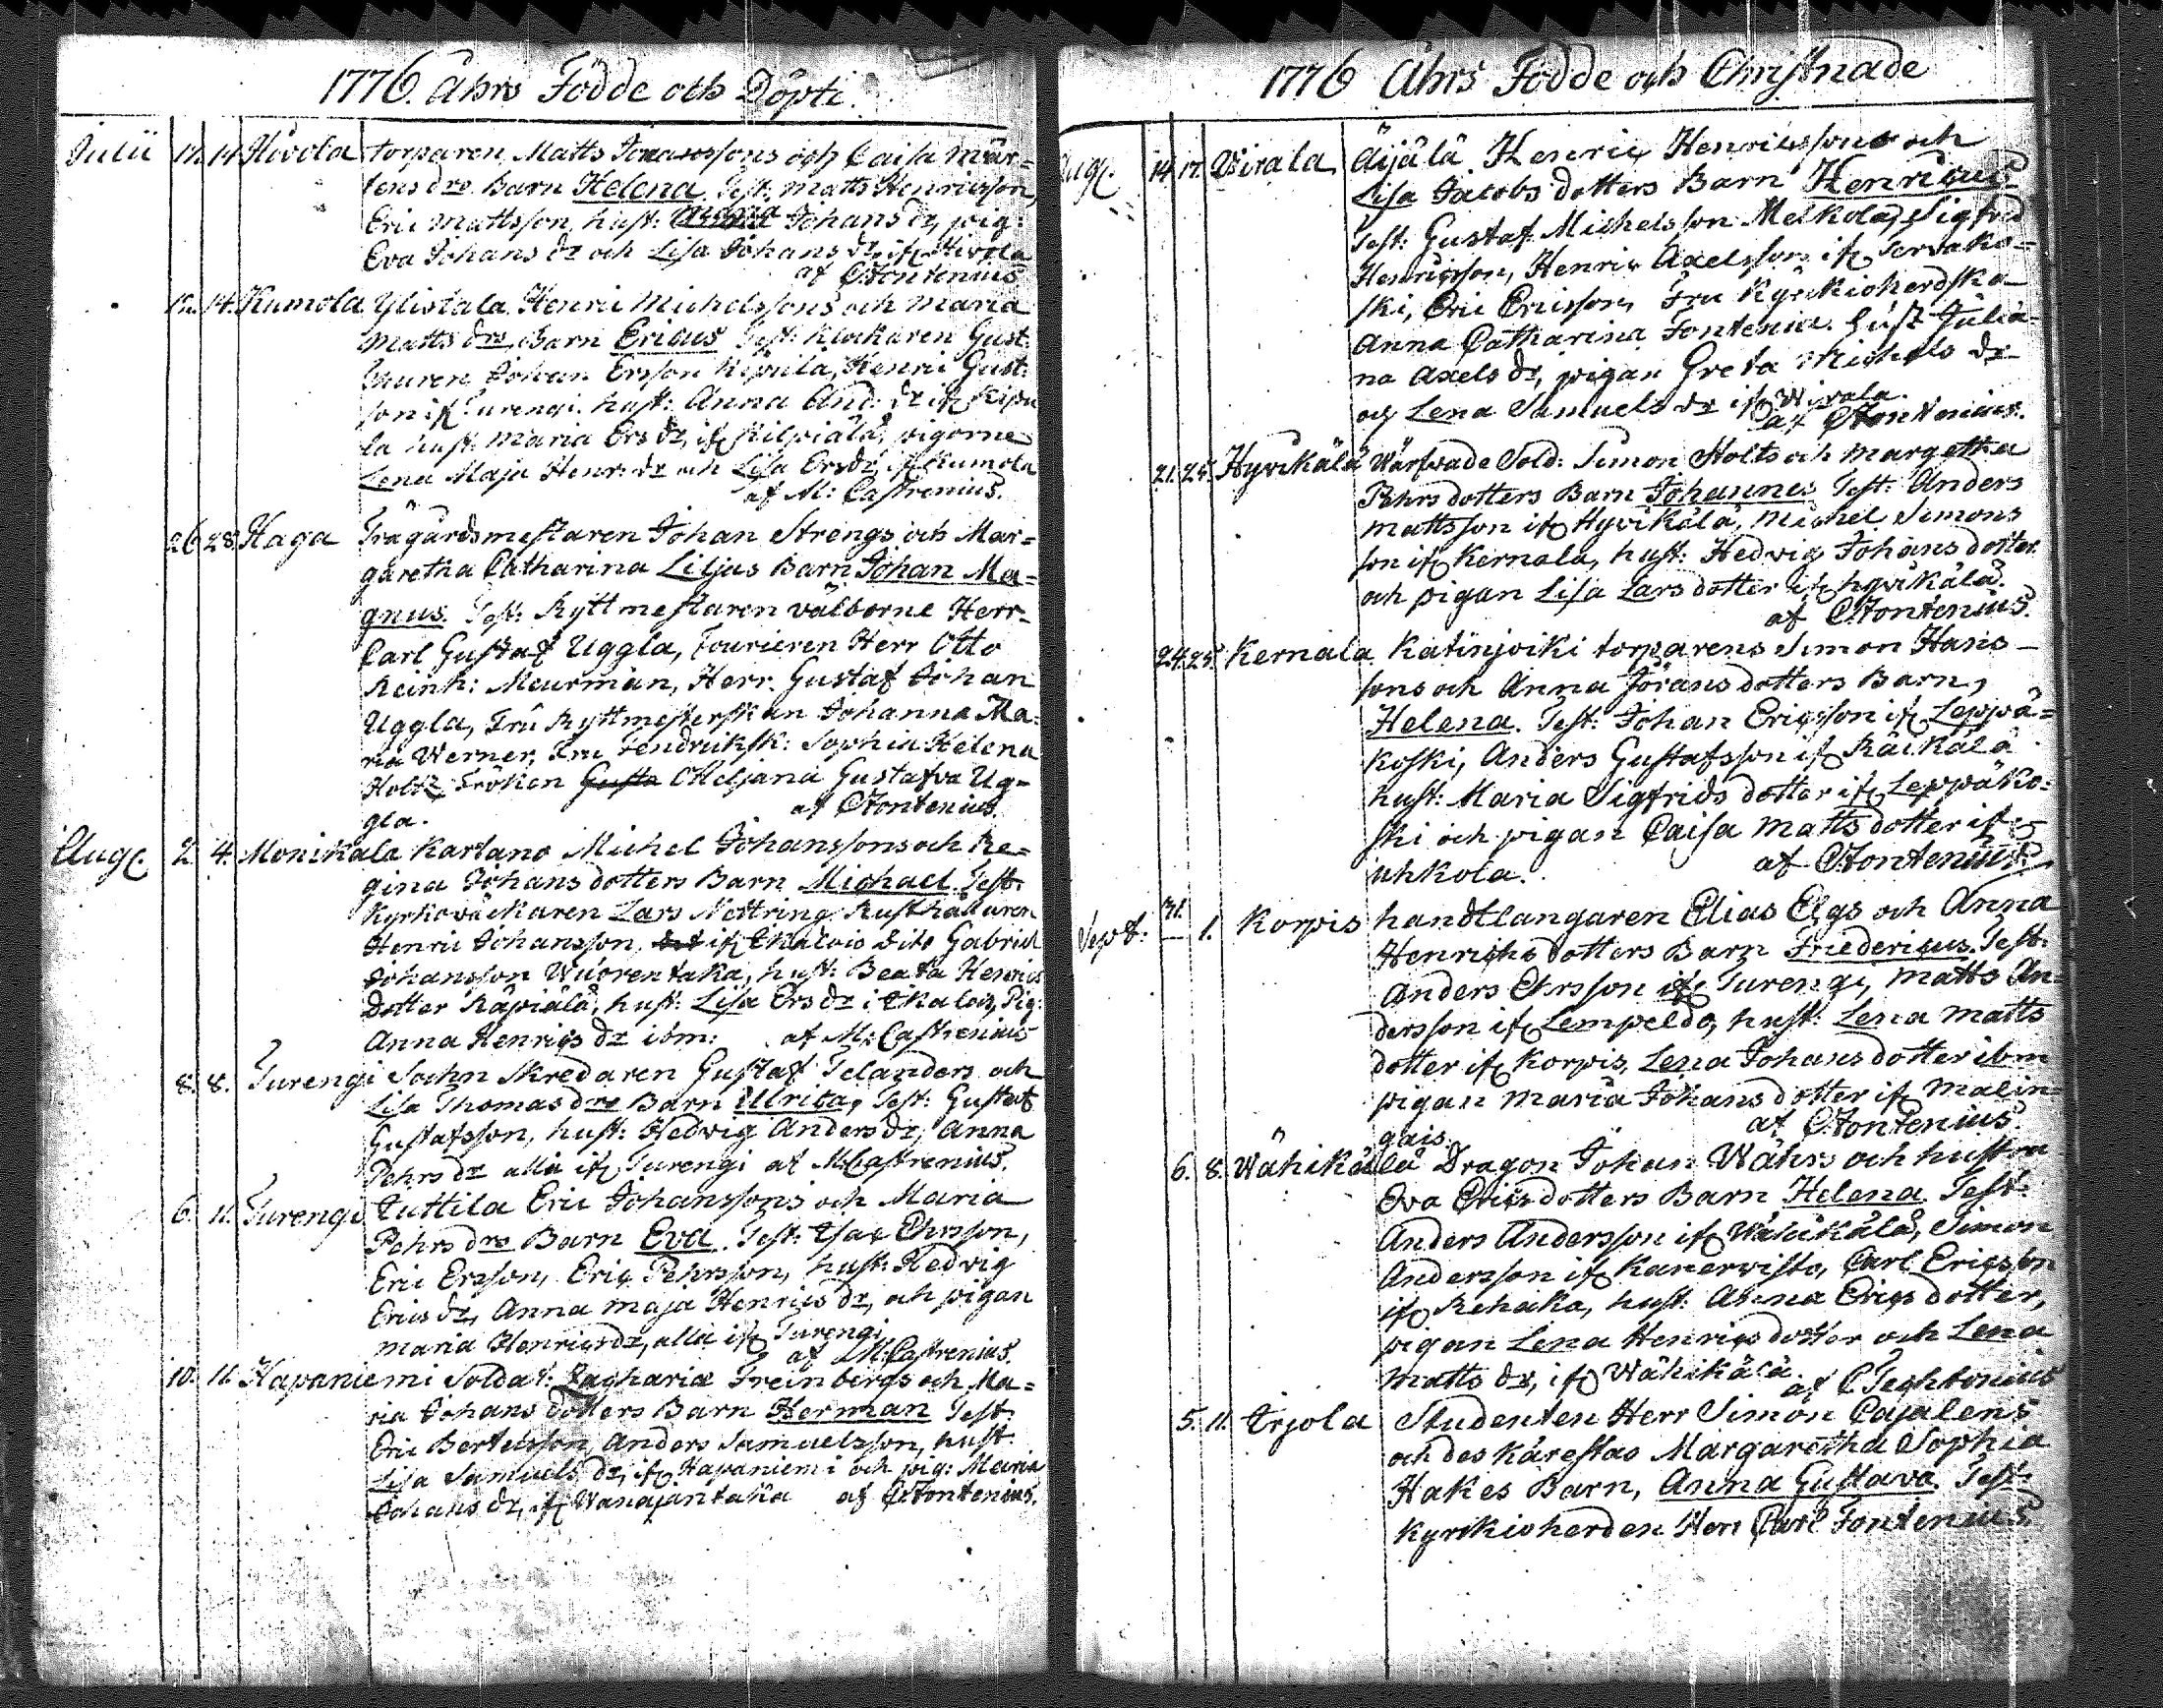 1776. Åhrs Födde och Döpte
Julii 12. 14 Hivola torparen Matts Tomassons och Caisa Mår=
tens drs Barn Helena. Test: Matts Henricsson,
Eric Mattsson, hust: Maria Johans dr, pig:
Eva Johans dr och Lisa Johans dr, if Hivola
af CFontenius
12. 14. Kumola Ylistala Henric Michelssons och Maria
Matts drs, Barn Ericus Test: Klockaren Gust:
Johan Ersson Kipula, Henric Gust:
son if Turengi. hust: Anna And: dr if Kipu
la hust: Maria Ers dr, if Kilpiälä, pigorne
Lena Maja Henr: dr och Lisa Ersdr, if Kumola
af M: Castrenius.
26 28 Haga Trägårdsmestaren Johan Strengs och Mar=
garetha Catharina Liljas Barn Johan Ma=
gnus. Test: Ryttmestaren välborne Herr
Carl Gustaf Uggla, Fourieren Herr Otto
Reinh: Meurman, Herr Gustaf Johan
Uggla, Fru Ryttmesterskan Johanna Ma=
ria Werner, Fru Fendricksk: Sophia Helena
Holtz, Fröken Gusta Heljana Gustafva Ug=
gla. af CFontenius.
Aug. 2. 4. Monikala Kartano Michel Johanssons och Re=
gina Johans dotters Barn Michael. Test:
Kyrkoväckaren Lars Nostring, Rusthållaren
Henric Johansson, if Ekalois dito Gabriel
Johansson Wuorentaka, hust: Beata Henrics
dotter Räpiälä, hust: Lisa Ers dr i Ekalois, Pig:
Anna Henrics dr ibm: af M: Castrenius
8. 8. Turengi Sochn Skredaren Gustaf Telanders och
Lisa Thomas drs Barn Ulrica, Test: Gustaf
Gustafsson, hust: Hedvig Anders dr, Anna
Pehrs dr alla if Turengi af M:Castrenius.
6. 11. Turengi Tuttila Eric Johanssons och Maria
Pehrs drs Barn Eva. Test: Isac Ehrsson,
Eric Ersson, Eric Pehrsson, hust: Hedvig
Erics dr, Anna Maja Henrics dr, och pigan
Maria Henricsdr, alla if Turengi
af M:Castrenius.
10. 11. Hapaniemi Soldat: Zachariæ Freinbergs och Ma=
ria Johans dotters Barn Herman Test:
Eric Bertelsson, Anders Samuelsson, hust:
Lisa Samuels dr, if Hapaniemi och pig: Maria
Johans dr, if Wanajantaka af CFontenius.
1776 Åhrs Födde och Christnade
Aug. 14. 17. Virala Äijälä Henric Henricssons och
Lisa Jacobs dotters Barn Henricus
Test: Gustaf Michelsson Melkola, Sigfrid
Henricsson, Henric Axelsson if Tervako=
ski, Eric Ericsson, Fru Kyrkioherdska
Anna Catharina Fontenia. hust: Julia=
na Axels dr, pigan Greta Michels dr
och Lena Samuels dr if Wirala.
af CFontenius.
21. 25. Hyvikälä Wärfvade Sold: Simon Holts och Margetha
Pehrs dotters Barn Johannes Test: Anders
Mattsson if Hyvikälä, Michel Simons
son if Kernala, hust: Hedvig Johans dotter
och pigan Lisa Lars dotter if hyvikälä.
af CFontenius.
24. 25. Kernala Katinjoiki torparens Simon Hans
sons och Anna Jörans dotters Barn,
Helena. Test: Johan Ericsson if Leppä=
koski, Anders Gustafsson if Räikälä
hust: Maria Sigfrids dotter if Leppäko=
ski och pigan Caisa Matts dotter if
uhkola. af CFontenius
Sept: 31. 1. Korpis handtlangaren Elias Elgs och Anna
Henrichs dotters Barn Friedericus. Test:
Anders Ehrsson if Turengi, Matts An=
dersson if Lempeldo, hust: Lena Matts
dotter if Korpis, Lena Johans dotter ibm
pigan Maria Johans dotter if Malin=
gais. af CFontenius.
6. 8. Wähikälä Dragon Johan Währs och hustru
Eva Ericsdotters Barn Helena. Test:
Anders Andersson if Wähikälä, Simon
Andersson if Kanervisto, Carl Ericsson
if Rehaka, hust: Anna Erics dotter,
pigan Lena Henrics dotter och Lena
Matts dr, if Wähikälä.
af CTechtonius
5. 11. Erjola Studenten Herr Simon Cajalens
och des käresta Margaretha Sophia
Hakes Barn, Anna Gustava. Test:
Kyrkioherden Herr Carl Fontenius.